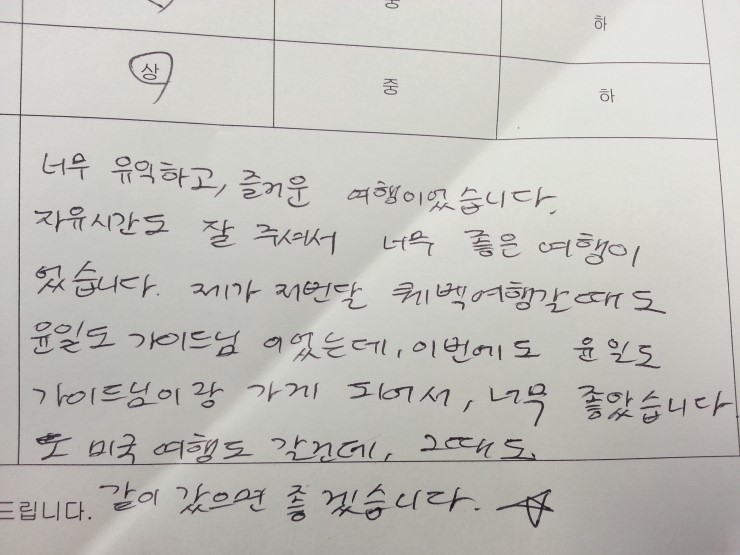 중
하
상
중
하
너무 유익하고, 즐거운 여행이었습니다.
자유시간도 잘 주셔서 너무 좋은 여행이
었습니다. 제가 저번달 퀘벡여행갈때도
윤일도 가이드님 이었는데, 이번에도 윤일도
가이드님이랑 가게 되어서, 너무 좋았습니다
또 미국 여행도 갈건데, 그때도.
드립니다. 같이 갔으면 좋겠습니다.